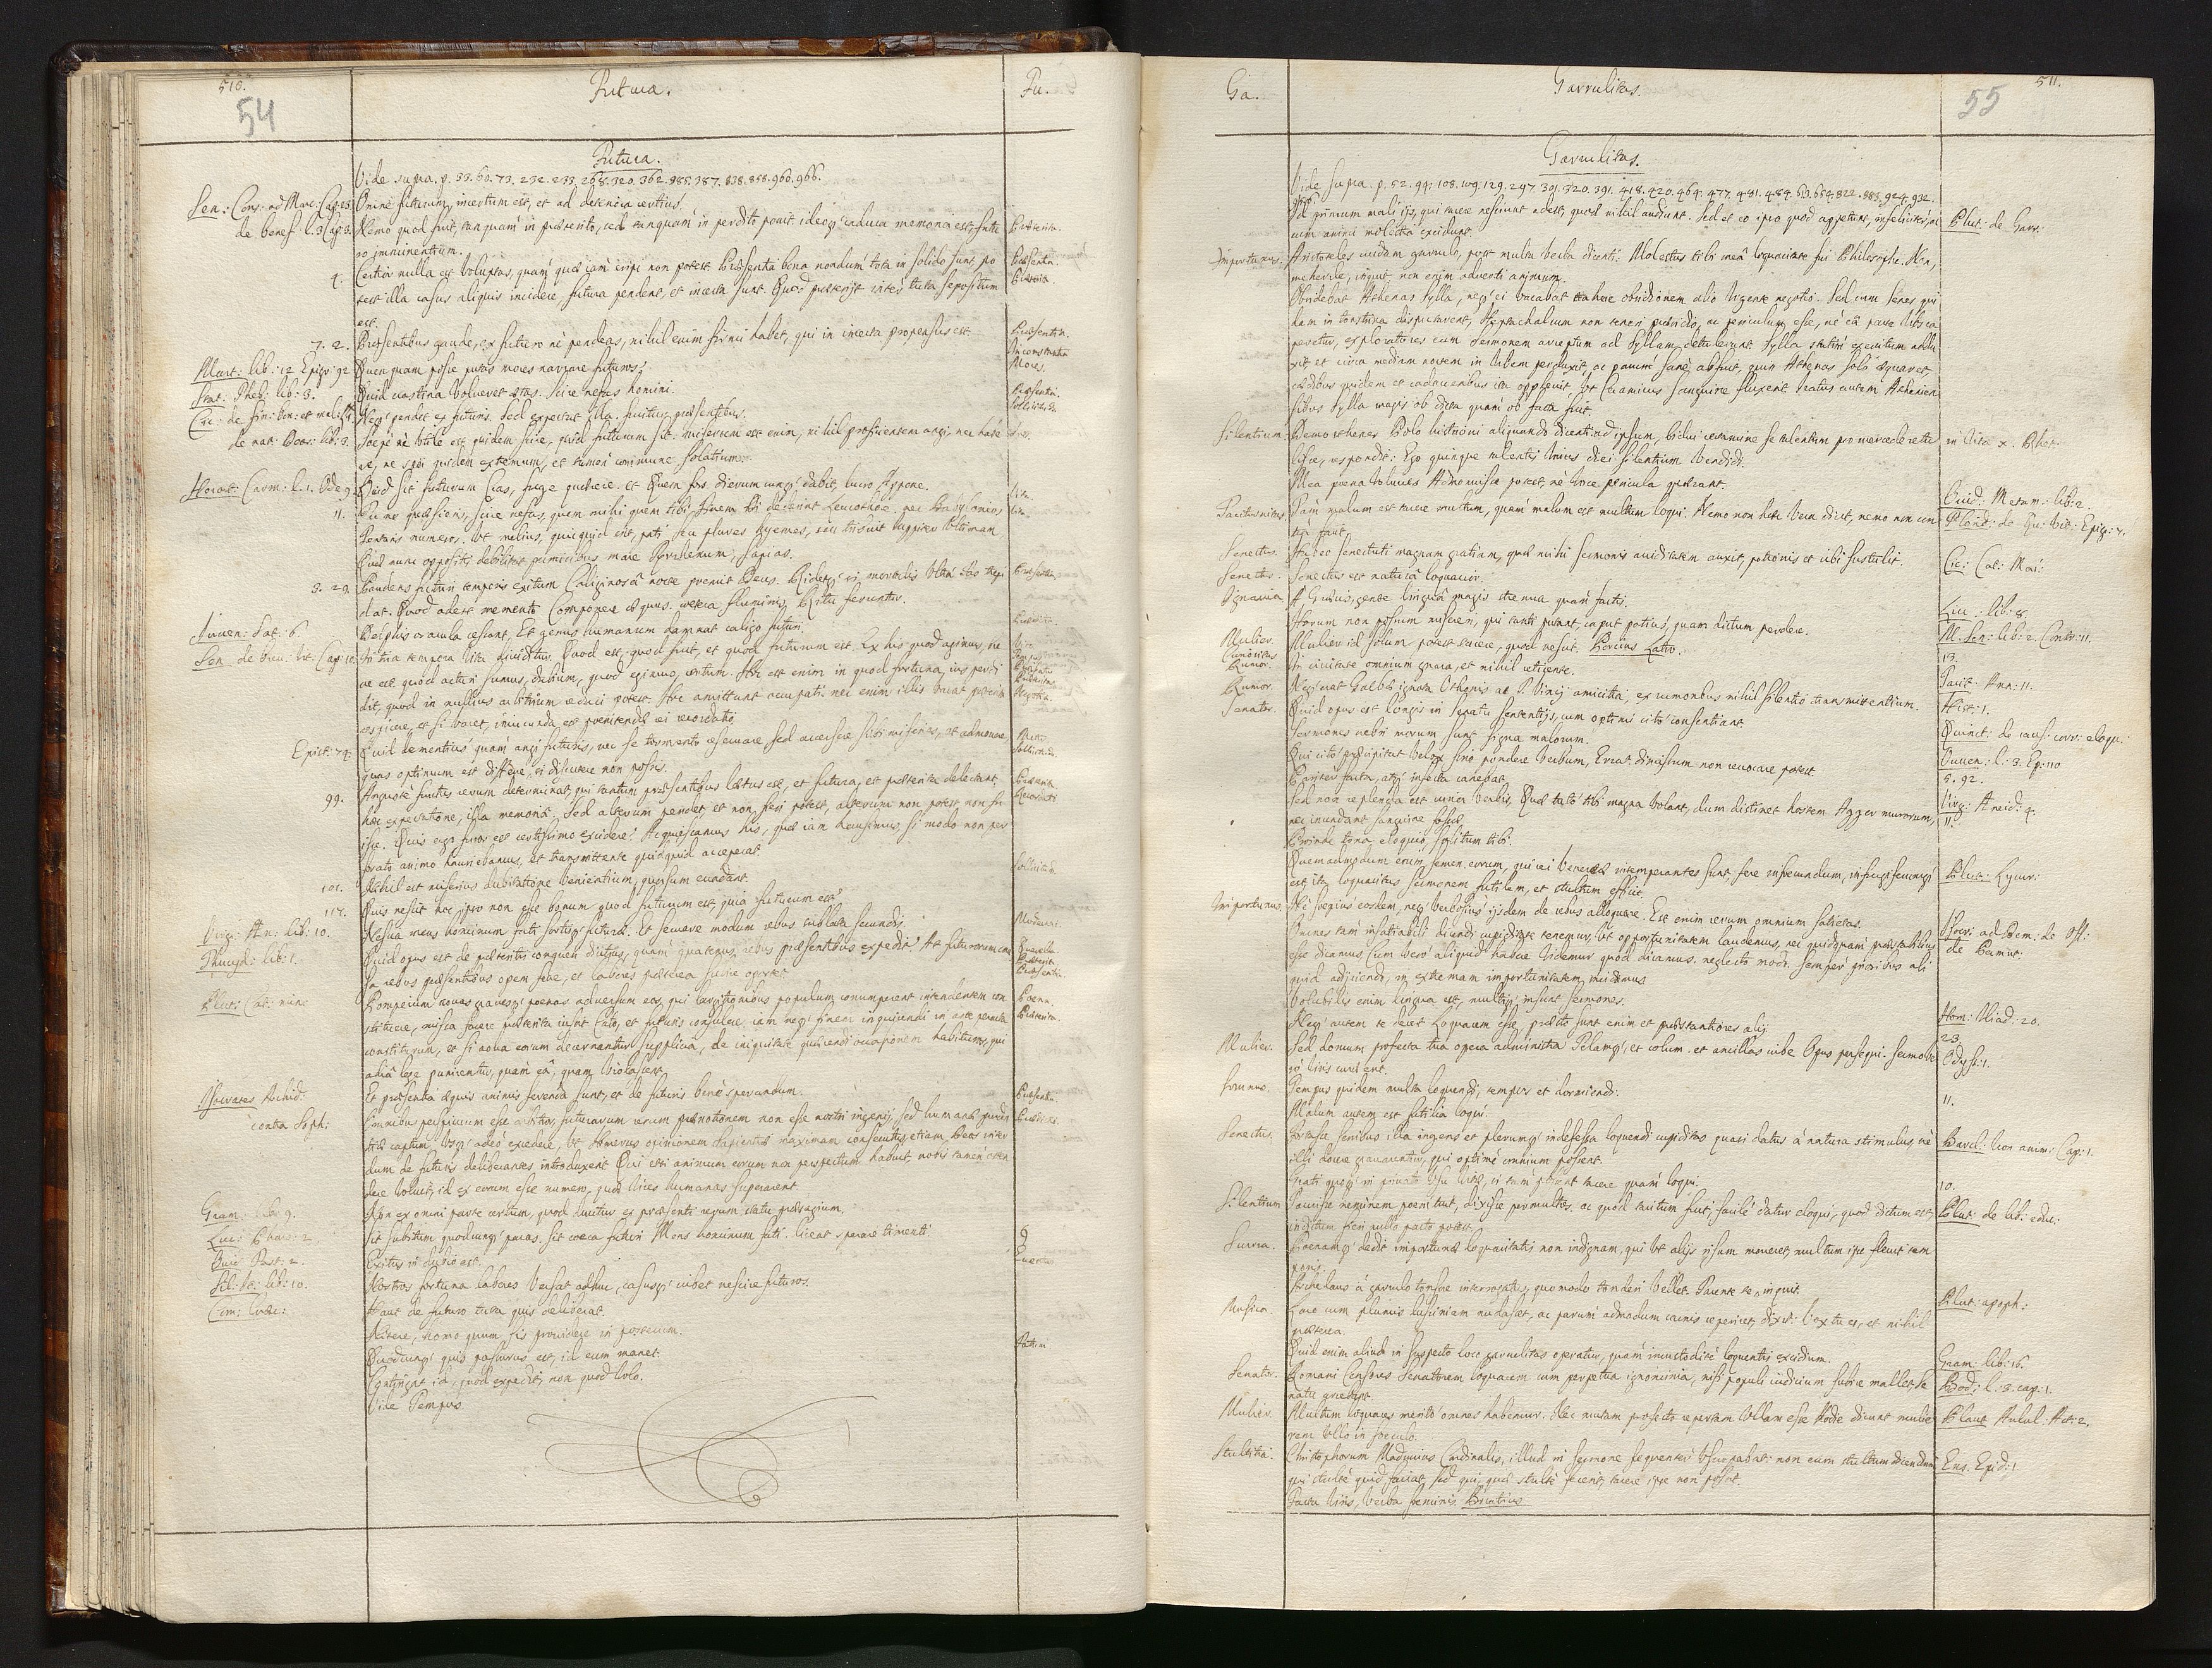 510.
54
Futura.
Fu.
Futura.
Vide supra. p. 33. 60. 73. 232. 233. 268. 320. 362. 385. 387. 838. 858. 960. 966.
Sen: Cons: ad Marc: Cap: 23. Omne futurum incertum est, et ad deteriora certius.
de benef. l. 3. Cap. 3. Nemo quod fuit, tanquam in praeterito, sed tanquam in perdito ponit. ideoq; caduca memoria est, futu Praeterita.
ro imminentium.
4. Certior nulla est Voluptas, quam quae iam eripi non potest. Praesentia bona nondum tota in solido sunt, po Praesentia.
test illa casus aliquis incidere, futura pendent, et incerta sunt. Quod praeterijt inter tuta sepositum
est.
7. 2. Praesentibus gaude, ex futuro ne pendeas, nihil enim firmi habet, qui in incerta propensus est. Praesentia.
Inconstantia
Mart: lib: 12 Epigr: 92 Quenquam posse putas mores narrare futuros? Mores.
Stat: Theb: lib: 3. Quid crastina Volueret aetas. Scire nefas homini.
Cic: de fin: bon: et mal: Neq; pendet ex futuris. Sed expectat illa. fruitur praesentibus. Praesentia.
de nat: Deor: lib: 3. Saepe ne Vtile est quidem scire, quid futurum sit. miserum est enim, nihil proficientem angi, nec habe
re, ne spei quidem extremum, et tamen commune solatium.
Horat: Carm: l. 1. Ode 9. Quid sit futurum Cras, fuge quaerere. et Quem fors dierum cunq; dabit, lucro Appone.
11. Tu ne quaesieris, scire nefas, quem mihi quem tibi Finem Di dederint Leuconoe. nec Babylonios
Tentaris numeros. Vt melius, quicquid erit, pati, seu plures hyemes, seu tribuit Iuppiter Vltimam
Quae nunc oppositis debilitat pumicibus mare Tyrrhenum, sapias.
3. 29. Prudens futuri temporis exitum Caliginosa nocte premit Deus. Ridetq; si mortalis Vltra fas trepi
dat. Quod adest memento Componere aequus. cetera fluminis Ritu feruntur.
Iuuen: Sat: 6. Delphis oracula cessant, Et genus humanum damnat caligo futuri.
Sen de breu: Vit: Cap: 10. In tria tempora Vita diuiditur. Quod est, quod fuit, et quod futurum est. Ex his quod agimus, bre
ue est, quod acturi sumus, dubium, quod egimus, certum. Hoc est enim in quod fortuna ius perdi
dit, quod in nullius arbitrium reduci potest. Hoc amittunt occupati. nec enim illis Vacat praeterita Negotia
respicere, et si Vacet, iniucunda est poenitendae rei recordatio.
Epist: 74. Quid dementius quam angi futuris, nec se tormento reseruare sed accersere sibi miserias, et admouere,
quas optimum est differre, si discutere non possis.
99. Anguste fructus rerum determinat, qui tantum praesentibus laetus est, et futura, et praeterita delectant.
haec expectatione, illa memoria. Sed alterum pendet, et non fieri potest, alterum non potest non fu
isse. Quis ergo furor est certissimo excidere? Acquiescamus his, quae iam hausimus, si modo non per
forato animo hauriebamus, et transmittente quidquid acceperat.
101. Nihil est miserius dubitatione Venientium, quorsum euadant.
117. Quis nescit hoc ipso non esse bonum quod futurum est, quia futurum est?
Virg: Aen: lib: 10. Nescia mens hominum fati sortisq; futurae. Et seruare modum rebus sublata secundis.
Thucyd: lib: 1. Quid opus est de praeteritis conqueri diutius, quam quatenus rebus praesentibus expedit? At futurorum cau
sa rebus praesentibus opem ferre, et labores praeterea subire oportet.
Plut: Cat: min: Pompeium nouas grauesq; poenas aduersum eos, qui largitionibus populum corrumperent intendentem con Poena.
stituere, missa facere praeterita iussit Cato, et futuris consulere. iam neq; finem inquirendi in ante peracta Praeterita.
constiturum, et si noua eorum decernantur supplicia, de iniquitate quaerendi occasionem habituros, qui
alia lege punirentur, quam ea, quam Violassent.
Isocrates Archid: Et praesentia aequis animis ferenda sunt, et de futuris bene sperandum. Praesentia.
contra Soph: Omnibus perspicuum esse arbitror, futurarum rerum praenotionem non esse nostri ingenij, sed humanae pruden
tiae captum Vsq; adeo excedere, Vt Homerus opinionem sapientiae maximam consecutus, etiam Deos inter
dum de futuris deliberantes introduxerit. Qui etsi animum eorum non perspectum habuit, nobis tamen osten
dere Voluit, id ex eorum esse numero, quae Vires humanas superarent.
Non ex omni parte certum, quod luitur ex praesenti rerum statu praesagium.
Luc: Phars: 2. Sit subitum quodcunq; paras. sit caeca futuri Mens hominum fati. liceat sperare timenti.
Exitus in dubio est. Euentus
Sil: It: lib: 10. Nostros fortuna labores Versat adhuc, casusq; iubet nescire futuros.
Haut de futuro tuta quis deliberat.
Natere, homo quum sis prouidere in posterum.
Quodcunq; quis passurus est, id eum manet. Fatum
Contingat id, quod expedit, non quod lubo.
Vide Tempus
Ga.
Garrulitas.
511.
55
Garrulitas.
Vide supra. p. 52. 94. 108. 109. 129. 297. 301. 320. 391. 418. 420. 464. 477. 481. 484. 822. 883. 924. 932.
Id primum mali ijs, qui tacere nesciunt adest, quod nihil audiunt. Sed et eo ipso quod appetunt, infeliciter, ac Plut: de Garr:
cum animi molestia excidunt.
Importunus. Aristoteles cuidam garrulo, post multa Verba dicenti: Molestus tibi mea loquacitate fui Philosophe. Non,
mehercule, inquit, non enim aduerti animum.
Obsidebat Athenas Sylla, neq; ei Vacabat trahere obsidionem alio Vrgente negotio. Sed cum senes qui
dam in tonstrina disputarent, Heptachalcum non teneri praesidio, ac periculum esse, ne ea parte Vrbs ca
peretur, exploratores eum sermonem arreptum ad Syllam detulerunt. Sylla statim exercitum addu
xit et circa mediam noctem in Vrbem perduxit, ac parum sane abfuit, quin Athenas solo aequaret,
caedibus quidem et cadaueribus ita oppleuit, Vt Ceramicus sanguine fluxerit. iratus autem Athenien
sibus Sylla magis ob dicta quam ob facta fuit.
Silentium. Demosthenes Polo histrioni aliquando dicenti ad ipsum, bidui certamine se talentum pro mercede retu in Vitae x. Rhet.
lisse, respondit: Ego quinque talentis Vnius diei silentium Vendidi.
Mea poena Volucres Admonuisse potest, ne Voce pericula quaerant. Ouid: Metam: lib: 2.
Taciturnitas. Tam malum est tacere multum, quam malum est multum loqui. Nemo non haec Vera dicit, nemo non con
tra facit.
Senectus. Habeo senectuti magnam gratiam, quae mihi sermonis auiditatem auxit, potionis et cibi sustulit. Cic: Cat: Mai:
Senectus. Senectus est natura loquacior.
Ignauia. A Graecis, gente lingua magis strenua quam factis. Liu: lib: 8.
Horum non possum misereri, qui tanti putant, caput potius, quam dictum perdere. M. Sen: lib: 2. Contr: 11.
Mulier. Mulier id solum potest tacere, quod nescit. Porcius Latro. 13.
Curiositas
Rumor. In ciuitate omnium gnara, et nihil reticente. Tacit: Ann: 11.
Rumor. Neq; erat Galbae ignota Othonis ac T. Vinij amicitia, ex rumoribus nihil silentio transmittentium. Hist: 1.
Senator. Quid opus est longis in Senatu sententijs, cum optimi cito consentiant Quinct: de caus: corr: eloqu:
Sermones nebri morum sunt signa malorum.
Qui cito praecipitat Velox sine pondere Verbum, Errat. dimissum non reuocare potest.
Pariter facta, atq; infecta canebat. Virg: Aeneid: 4.
Sed non replenda est curia Verbis, Quae tuto tibi magna Volant, dum distinet hostem Agger murorum,
nec inundant sanguine fossae. 11.
Proinde tona eloquio, solitum tibi.
Quemadmodum enim semen eorum, qui rei Venereae intemperantes sunt, fere infoecundum, infrugiferumq;
est, ita loquacitas sermonem futilem, et stultum efficit. Plut: Lycur:
Importunus. Ne saepius eosdem, neq; Verbosius ijsdem de rebus alloquare. Est enim rerum omnium satietas. Isocr: ad Dem: de Off:
Omnes tam insatiabili dicendi cupiditate tenemur, Vt opportunitatem laudemus, nec quidquam praestabilius de Permut:
esse dicamus. Cum Vero aliquid habere Videmur quod dicamus, neglecto modo, semper prioribus ali
quid adijciendo, in extremam importunitatem incidimus
Volubilis enim lingua est, multiq; insunt sermones. Hom: Iliad: 20.
Neq; autem te decet loquacem esse, praesto sunt enim et praestantiores alij 23.
Mulier. Sed domum profecta tua opera administra Telamq; et colum. et ancillas iube Opus persequi. Sermo Ve Odyss: 1.
ro Viris curae erit.
Somnus. Tempus quidem multa loquendi, tempus et dormiendi. 11.
Malum autem est futilia loqui.
Senectus. Fortasse senibus illa ingens et plerumq; indefessa loquendi cupiditas quasi datus a natura stimulus, ne Barcl: Icon anim: Cap: 1.
illi docere grauarentur, qui optime omnium possent.
Grati quoq; in priuato Vsu Vitae, si tam possent tacere quam loqui. 10.
Silentium. Tacuisse neminem poenituit, dixisse permultos. ac quod tacitum fuit, facile datur eloqui, quod dictum est, Plut: de lib: educ:
indictum fieri nullo pacto potest.
Poenamq; dedit importunae loquacitatis non indignam, qui Vt alijs risum moueret, multum ipse fleuit tem
poris.
Archelaus a garrulo tonsore interrogatus, quo modo tonderi Vellet. Tacente te, inquit. Plut: apoph:
Musica. Laco cum plumis lusciniam nudasset, ac parum admodum carnis reperiret, dixit: Vox tu es, et nihil
praeterea.
Quid enim aliud in suspecto loco garrulitas operatur, quam incustodite loquentis excidium. Gram: lib: 16.
Senator. Romani Censores Senatorem loquacem cum perpetua ignominia, nisi populi iudicium subire mallet, Se Bod: l. 3. cap: 1.
natu mouebant.
Mulier. Multum loquaces merito omnes habemur. Nec mutam profecto repertam Vllam esse Hodie dicunt mulie Plaut Aulul: Act: 2.
rem Vllo in saeculo.
Stultitia. Christophorum Madrucius Cardinalis, illud in sermone frequenter Vsurpabat: non eum stultum dicendum Ens. Epid: 1
qui stulte quid faciat, sed qui, quae stulte fecerit, tacere ipse non possit.
Facta Viris, Verba foeminis